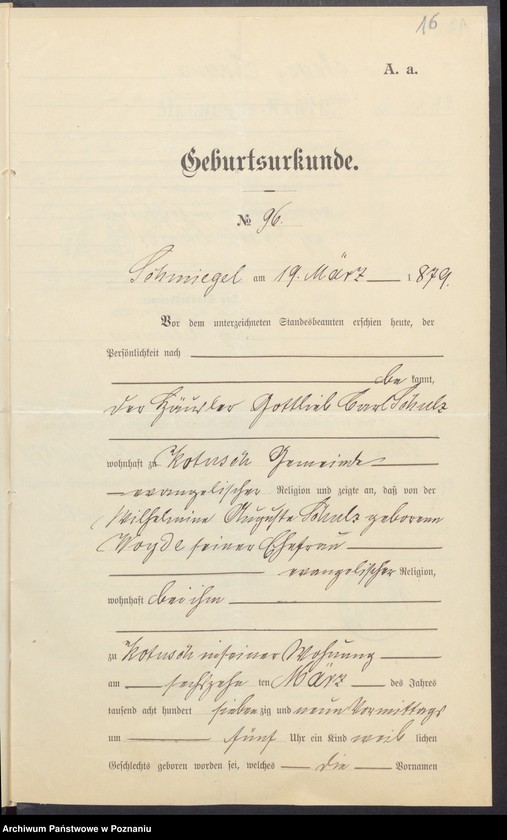 16
A. a.
Geburtsurkunde.
№ 96.
Schmiegel am 19. März 1879.
Vor dem unterzeichneten Standesbeamten erschien heute, der
Persönlichkeit nach
be kannt,
der Häusler Gottlieb Carl Schulz
wohnhaft zu Kotusch Gemeinde
evangelischer Religion und zeigte an, daß von der
Wilhelmine Auguste Schulz geborenen
Woyde seiner Ehefrau
evangelischer Religion,
wohnhaft bei ihm
zu Kotusch in seiner Wohnung
am sechszehn ten März des Jahres
tausend acht hundert sieben zig und neun Vormittags
um fünf Uhr ein Kind weib lichen
Geschlechts geboren worden sei, welches die Vornamen
Archiwum Państwowe w Poznaniu